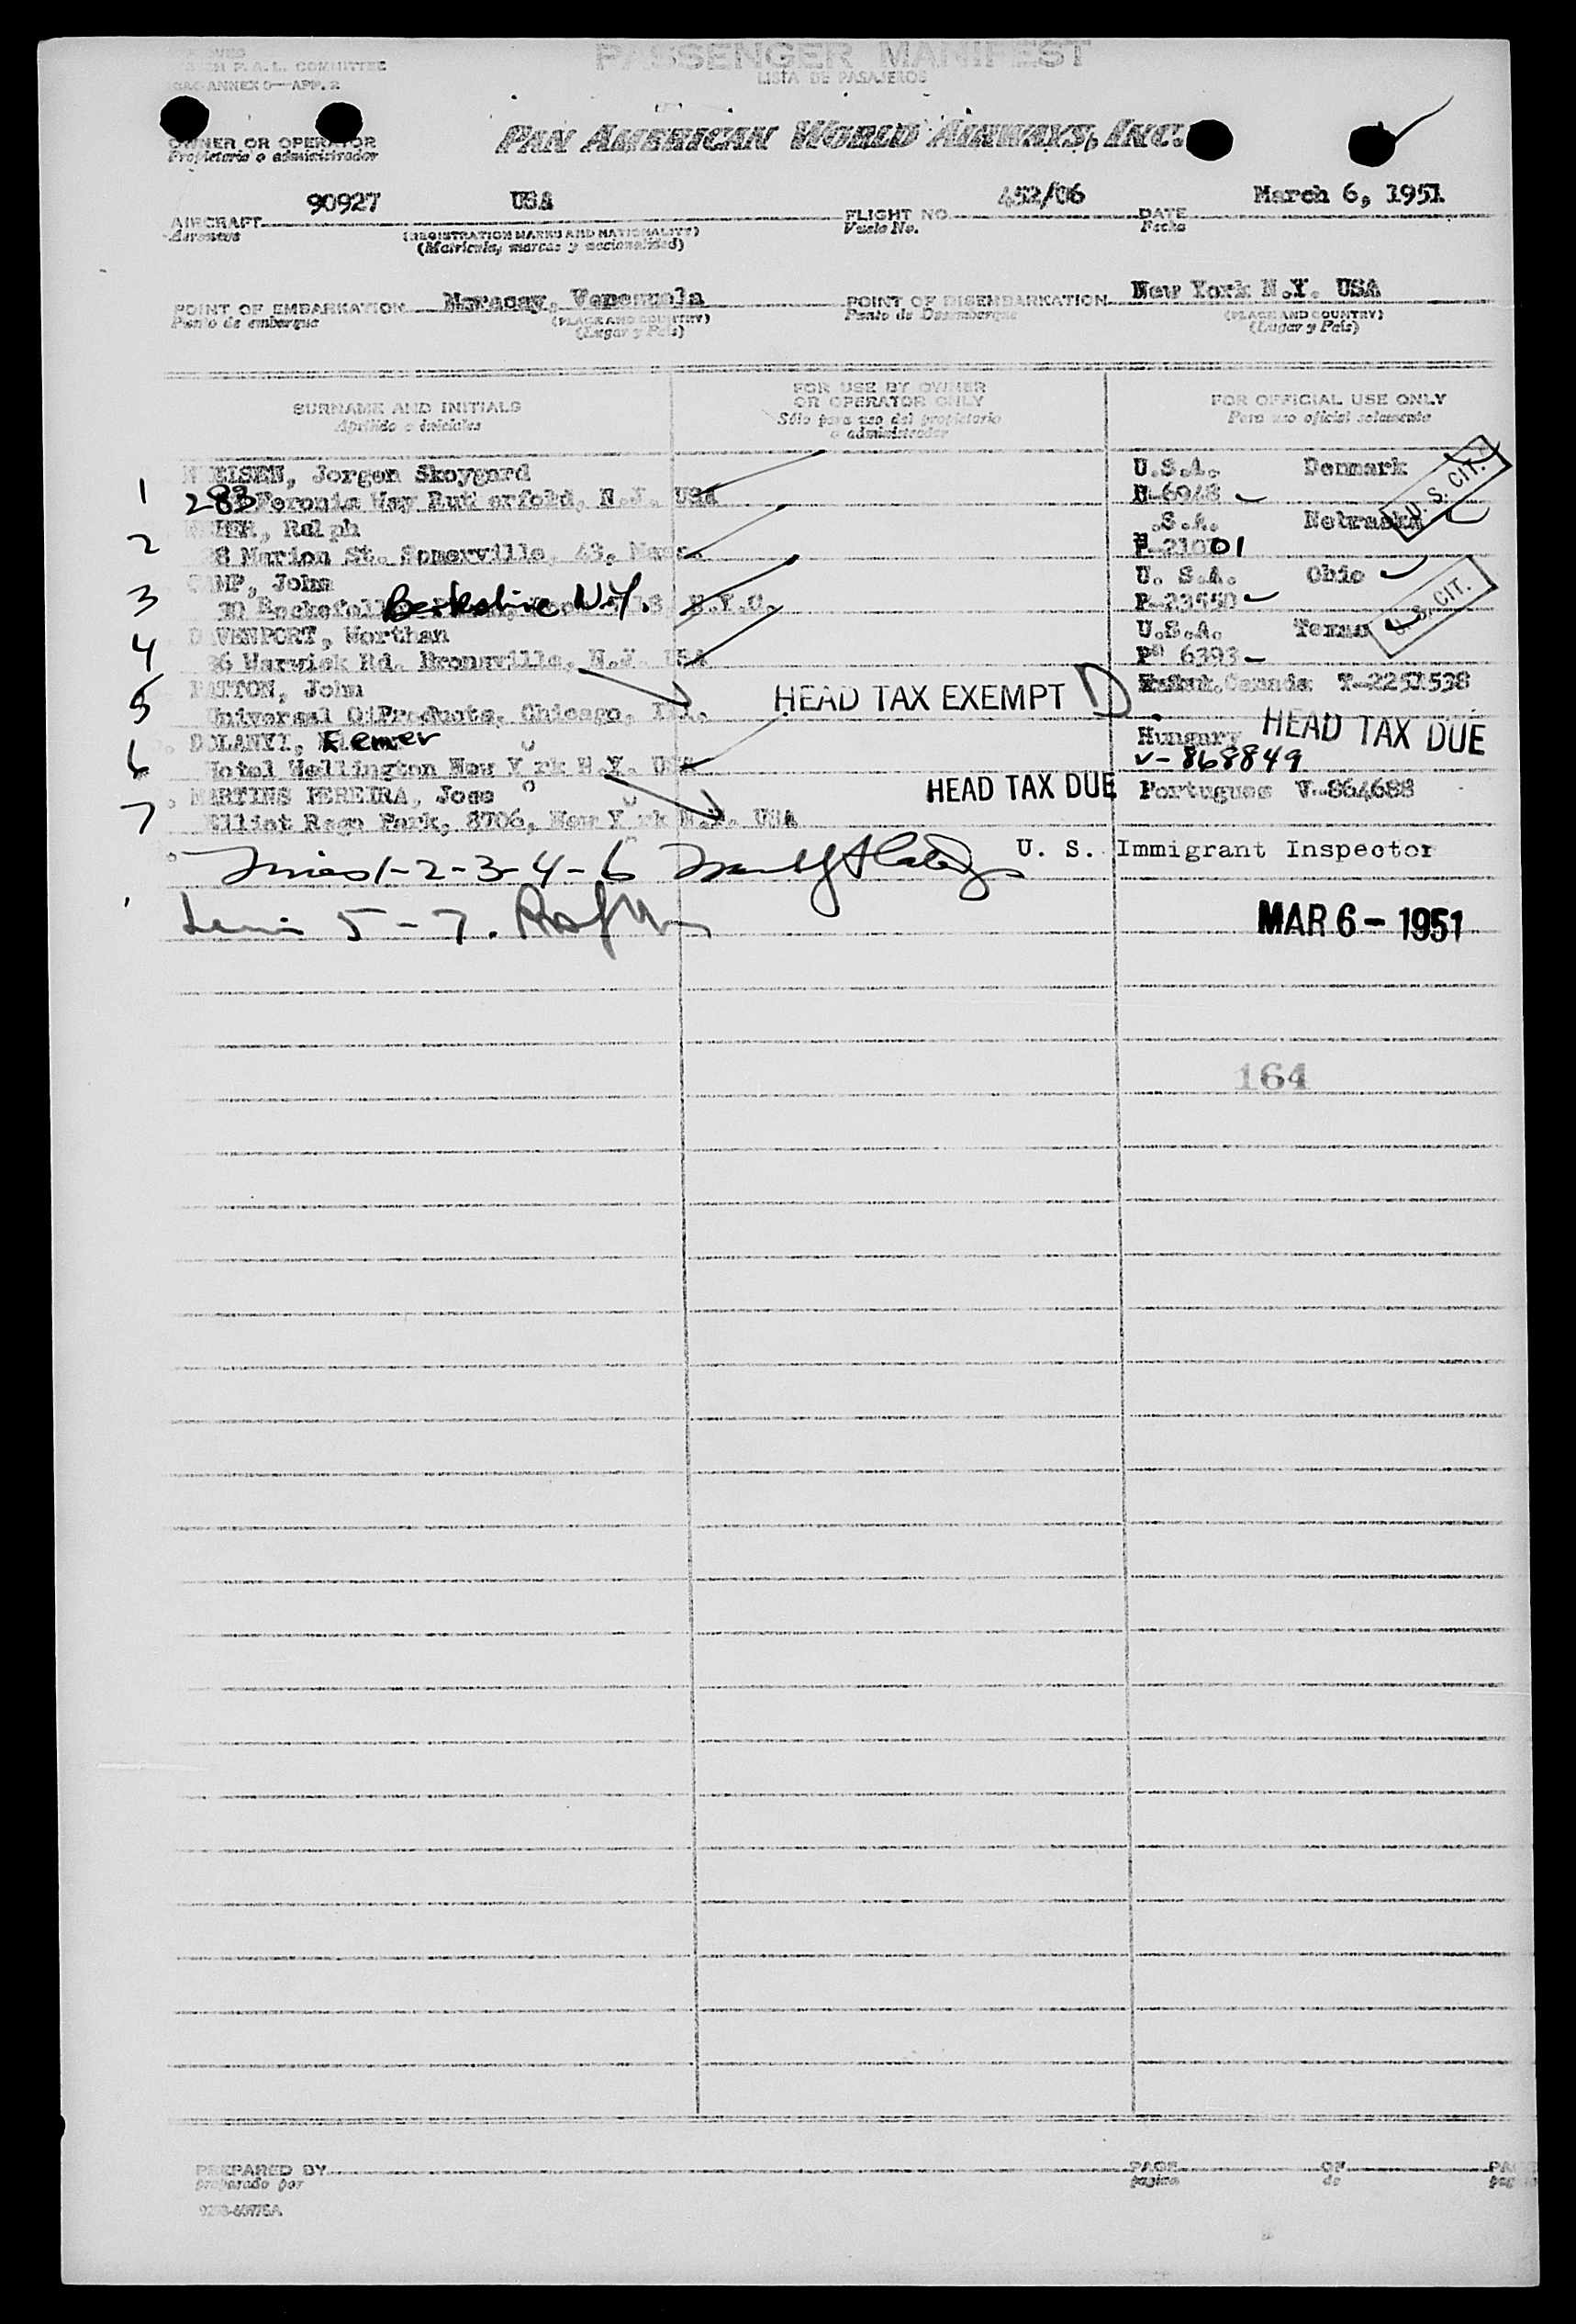 P.A.L. COMMITTEE
ANNEX 5—APP. 2
PASSENGER MANIFEST
LISTA DE PASAJEROS
OWNER OR OPERATOR
Propietario o administrador
PAN AMERICAN WORLD AIRWAYS, INC.
AIRCRAFT 90927 USA
Aeronave
(REGISTRATION MARKS AND NATIONALITY)
(Matricula, marcas y nacionalidad)
FLIGHT NO. 452/06
Vuelo No.
DATE March 6, 1951
Fecha
POINT OF EMBARKATION Maracay, Venezuela
Punto de embarque
(PLACE AND COUNTRY)
(Lugar y País)
POINT OF DISEMBARKATION New York N.Y. USA
Punto de Desembarque
(PLACE AND COUNTRY)
(Lugar y País)
SURNAME AND INITIALS
Apellido e iniciales
FOR USE BY OWNER
OR OPERATOR ONLY
Sólo para uso del propietario
o administrador
FOR OFFICIAL USE ONLY
Para uso oficial solamente
1 Jorgen Skoygard U.S.A. Denmark
283 Way N.J. USA 6948 U. S. CIT.
2 Ralph .S.A. Nebraska
Marion St. Somerville, 43, Mass. P-21001
3 John U. S.A. Ohio
Berkshire N.Y. N.Y.C. P-23550 S. CIT.
4 DAVENPORT, Worthan U.S.A. Texas
Warwick Rd. Bronxville, N.Y. USA P 6393
5 PATTON, John HEAD TAX EXEMPT D Canada T-2251538
Universal Products, Chicago, Ill.
6 Elemer Hungary HEAD TAX DUE
Hotel Wellington New York N.Y. USA V-868849
7 MARTINS PEREIRA, Jose HEAD TAX DUE Portugues V-864688
Elliot Rego Park, 8706, New York N.Y. USA
1-2-3-4-6 U. S. Immigrant Inspector
5-7.
MAR 6 - 1951
164
PREPARED BY
preparado por
PAGE OF
pagina de